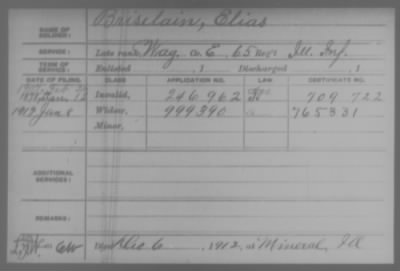 NAME OF SOLDIER: Briselain, Elias
SERVICE: Late rank, Wag. Co. E, 65 Reg't Ill. Inf.
TERM OF SERVICE: Enlisted , 1 Discharged , 1
DATE OF FILING. CLASS. APPLICATION NO. LAW. CERTIFICATE NO.
Invalid, 246 962 709 722
1913 Jan 8 Widow, 999390 765331
Minor,
ADDITIONAL SERVICES:
REMARKS:
Died Dec 6, 1912, at Mineral, Ill